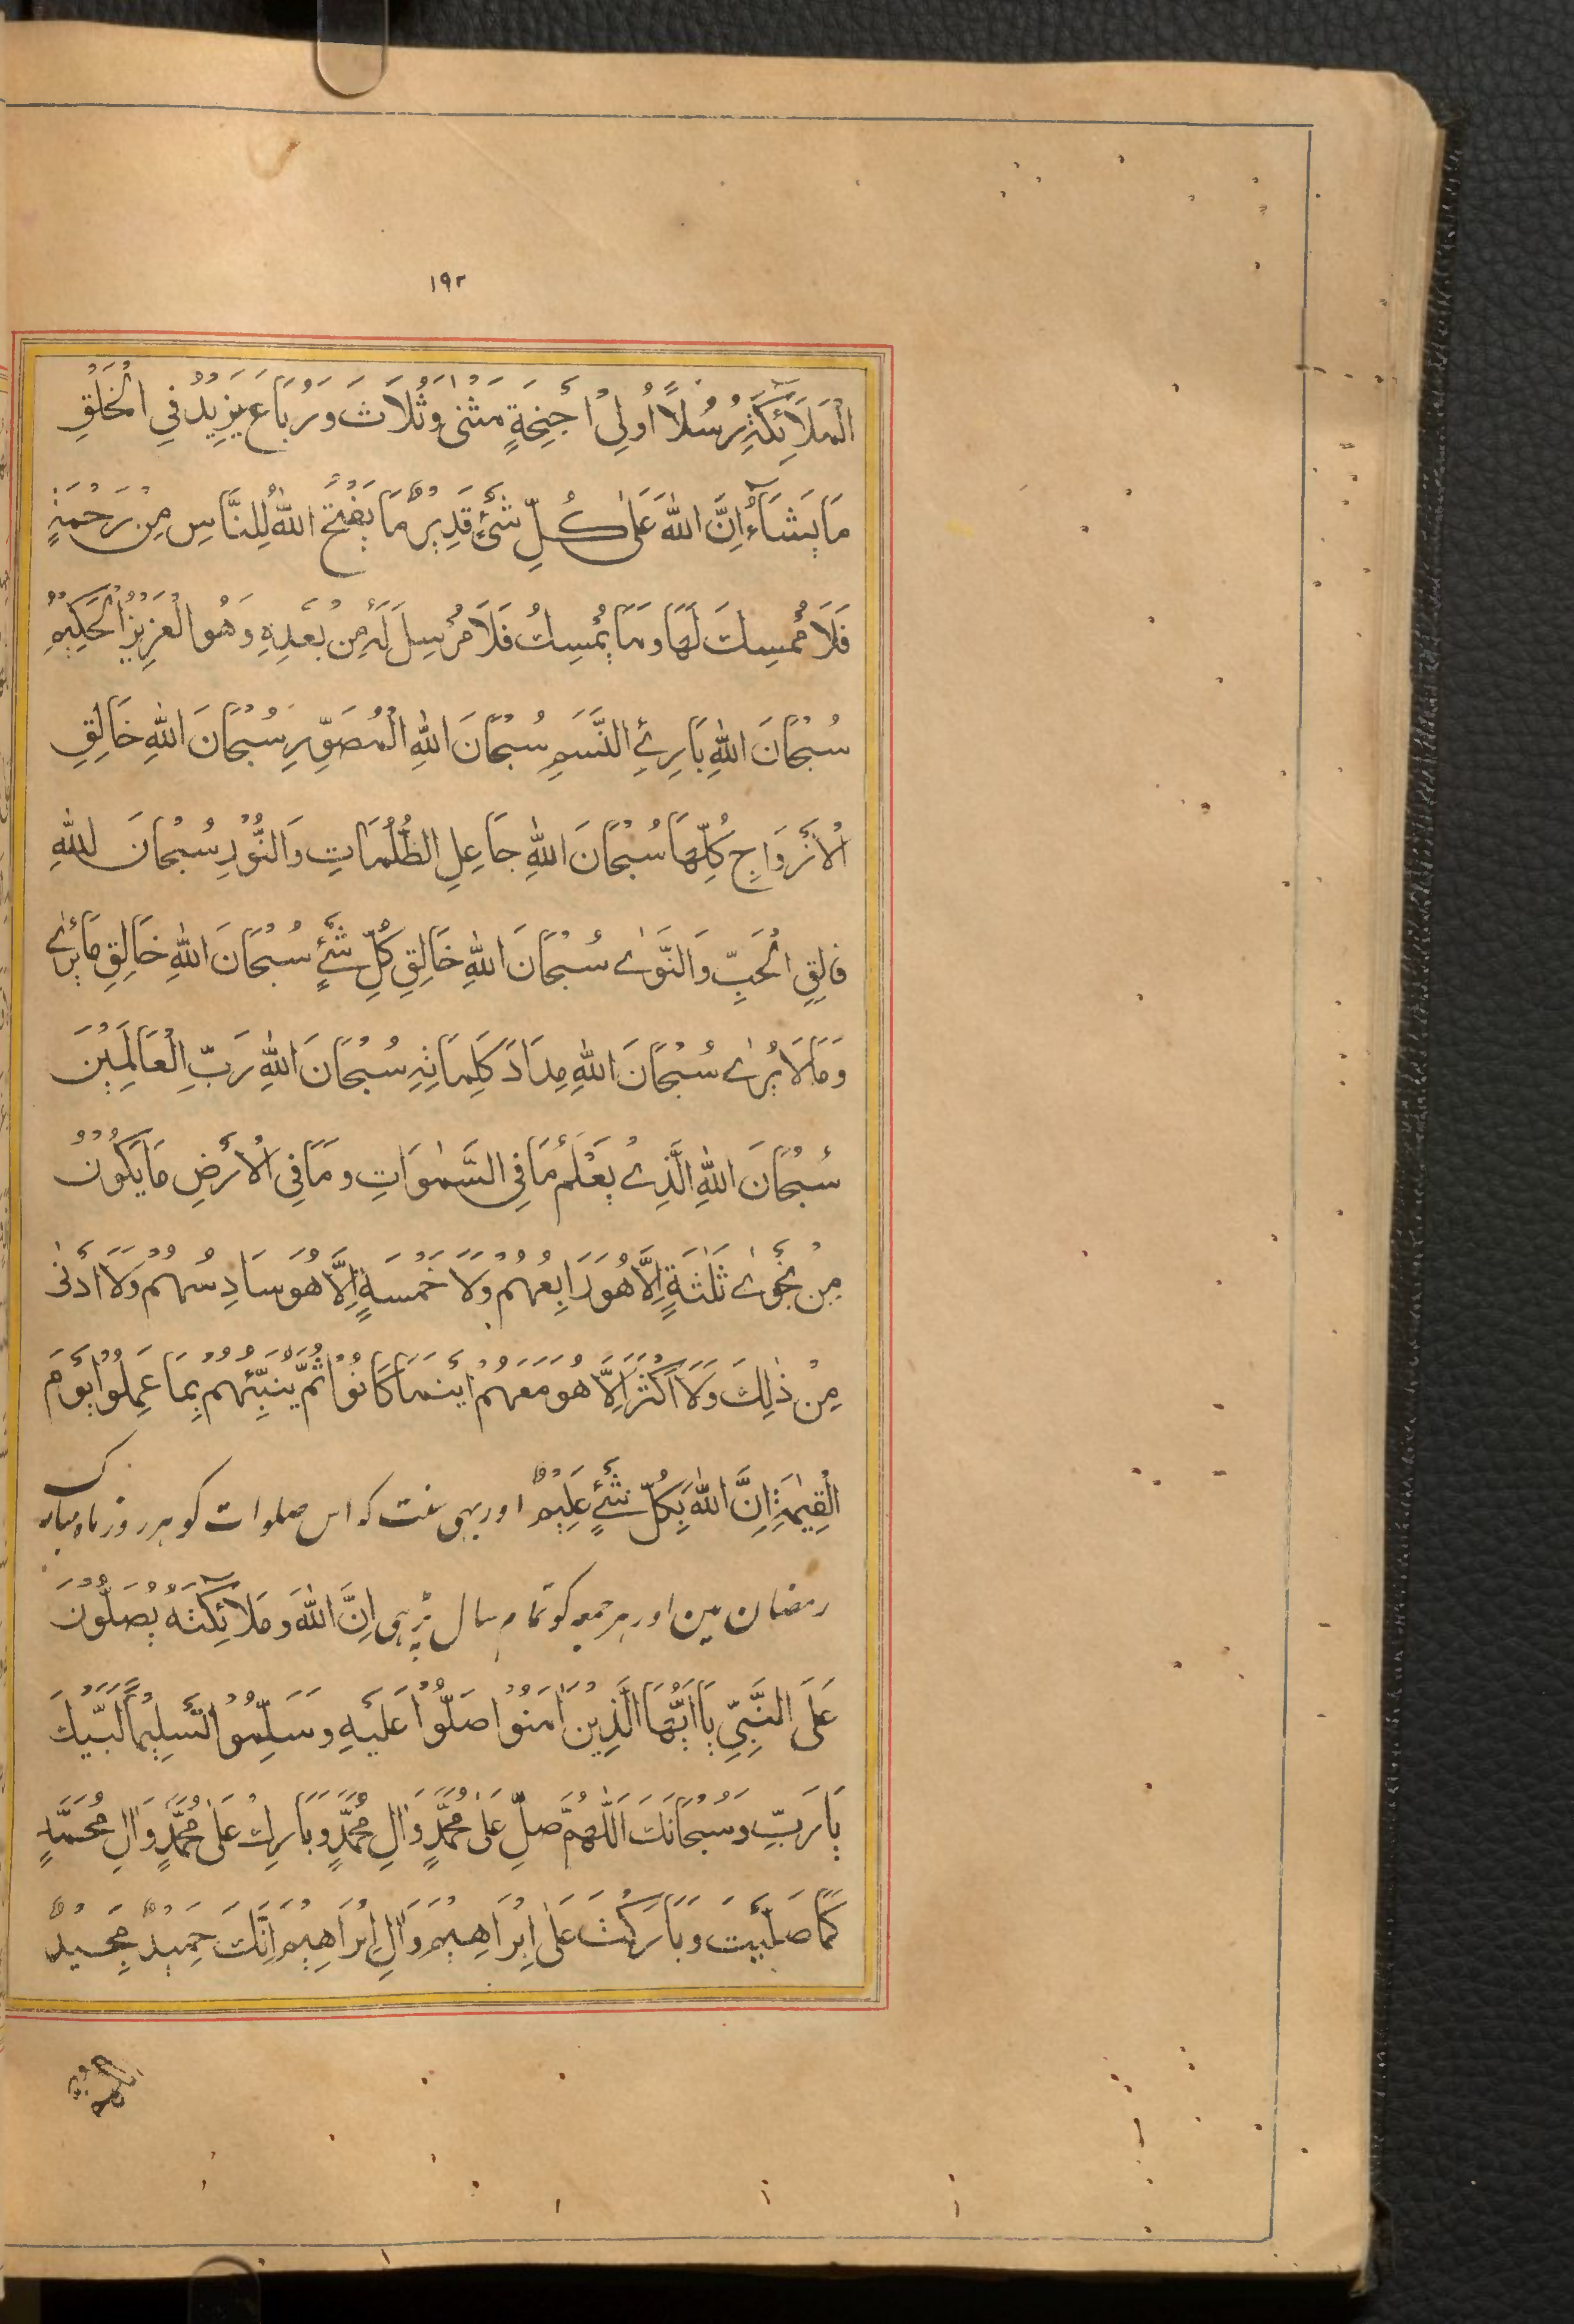 ۱۹۲
الْمَلَائِكَةِ رُسُلًا اُولِیْ اَجْنِحَةٍ مَثْنٰی وَثُلَاثَ وَرُبَاعَ یَزِیْدُ فِی الْخَلْقِ
مَا یَشَآءُ اِنَّ اللّٰهَ عَلٰی كُلِّ شَیْءٍ قَدِیْرٌ مَا یَفْتَحُ اللّٰهُ لِلنَّاسِ مِنْ رَحْمَةٍ
فَلَا مُمْسِكَ لَهَا وَمَا یُمْسِكْ فَلَا مُرْسِلَ لَهٗ مِنْ بَعْدِهِ وَهُوَ الْعَزِیْزُ الْحَكِیْمُ
سُبْحَانَ اللّٰهِ بَارِئِ النَّسَمِ سُبْحَانَ اللّٰهِ الْمُصَوِّرِ سُبْحَانَ اللّٰهِ خَالِقِ
الْاَزْوَاجِ كُلِّهَا سُبْحَانَ اللّٰهِ جَاعِلِ الظُّلُمَاتِ وَالنُّوْرِ سُبْحَانَ اللّٰهِ
فَالِقِ الْحَبِّ وَالنَّوٰی سُبْحَانَ اللّٰهِ خَالِقِ كُلِّ شَیْءٍ سُبْحَانَ اللّٰهِ خَالِقِ مَا یُرٰی
وَمَا لَا یُرٰی سُبْحَانَ اللّٰهِ مِدَادَ كَلِمَاتِهِ سُبْحَانَ اللّٰهِ رَبِّ الْعَالَمِیْنَ
سُبْحَانَ اللّٰهِ الَّذِیْ یَعْلَمُ مَا فِی السَّمٰوَاتِ وَمَا فِی الْاَرْضِ مَا یَكُوْنُ
مِنْ نَجْوٰی ثَلٰثَةٍ اِلَّا هُوَ رَابِعُهُمْ وَلَا خَمْسَةٍ اِلَّا هُوَ سَادِسُهُمْ وَلَا اَدْنٰی
مِنْ ذٰلِكَ وَلَا اَكْثَرَ اِلَّا هُوَ مَعَهُمْ اَیْنَمَا كَانُوْا ثُمَّ یُنَبِّئُهُمْ بِمَا عَمِلُوْا یَوْمَ
الْقِیٰمَةِ اِنَّ اللّٰهَ بِكُلِّ شَیْءٍ عَلِیْمٌ اور یہی سنت کہ اس صلوات کو ہر روز ماہ مبارک
رمضان مین اور ہر جمعہ کو تمام سال پڑہی اِنَّ اللّٰهَ وَمَلَائِكَتَهٗ یُصَلُّوْنَ
عَلَی النَّبِیِّ یَا اَیُّهَا الَّذِیْنَ اٰمَنُوْا صَلُّوْا عَلَیْهِ وَسَلِّمُوْا تَسْلِیْمًا لَبَّیْكَ
یَا رَبِّ وَسُبْحَانَكَ اَللّٰهُمَّ صَلِّ عَلٰی مُحَمَّدٍ وَاٰلِ مُحَمَّدٍ وَبَارِكْ عَلٰی مُحَمَّدٍ وَاٰلِ مُحَمَّدٍ
كَمَا صَلَّیْتَ وَبَارَكْتَ عَلٰی اِبْرَاهِیْمَ وَاٰلِ اِبْرَاهِیْمَ اِنَّكَ حَمِیْدٌ مَجِیْدٌ